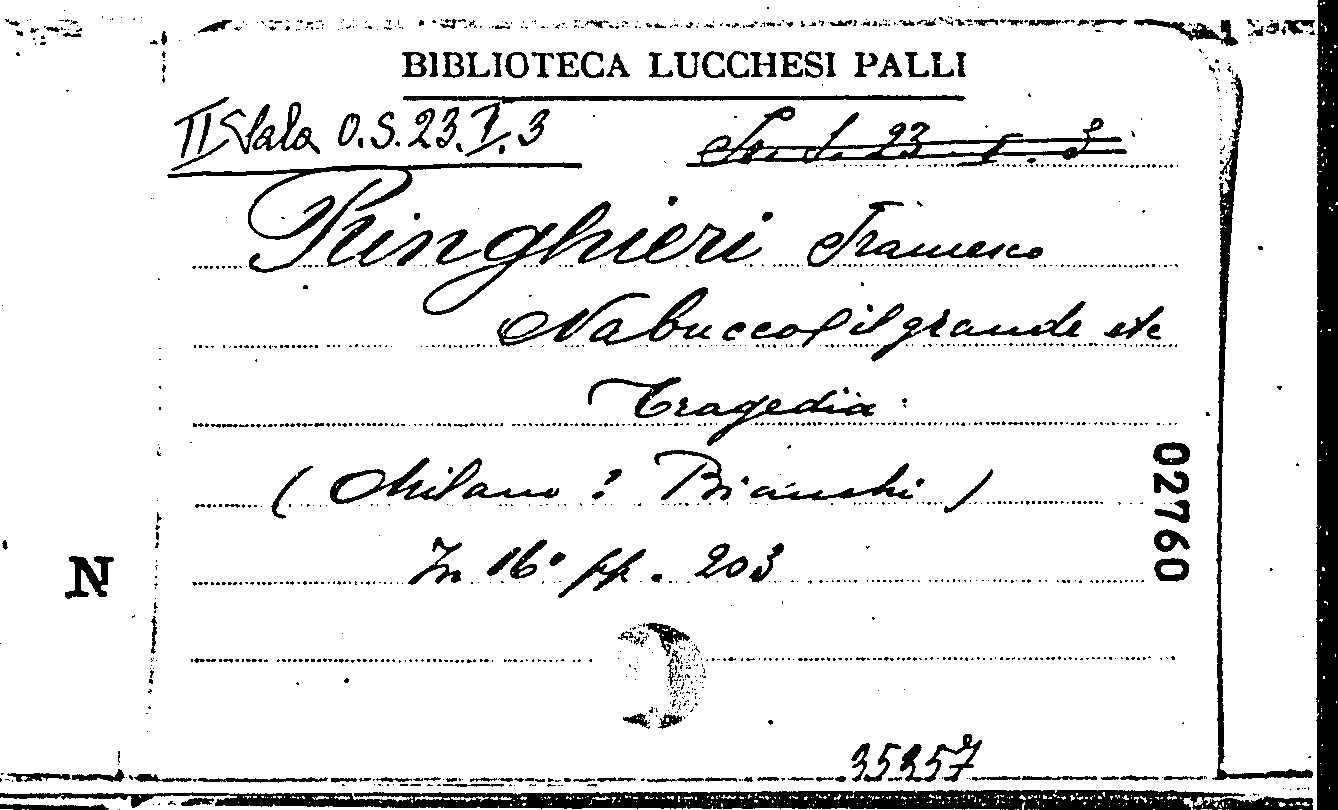 BIBLIOTECA LUCCHESI PALLI
II Sala O.S.23.I.3
Ringhieri Francesco
Nabucco il grande etc
Tragedia
(Milano : Bianchi)
In 16° pp. 203
02760
N
35257